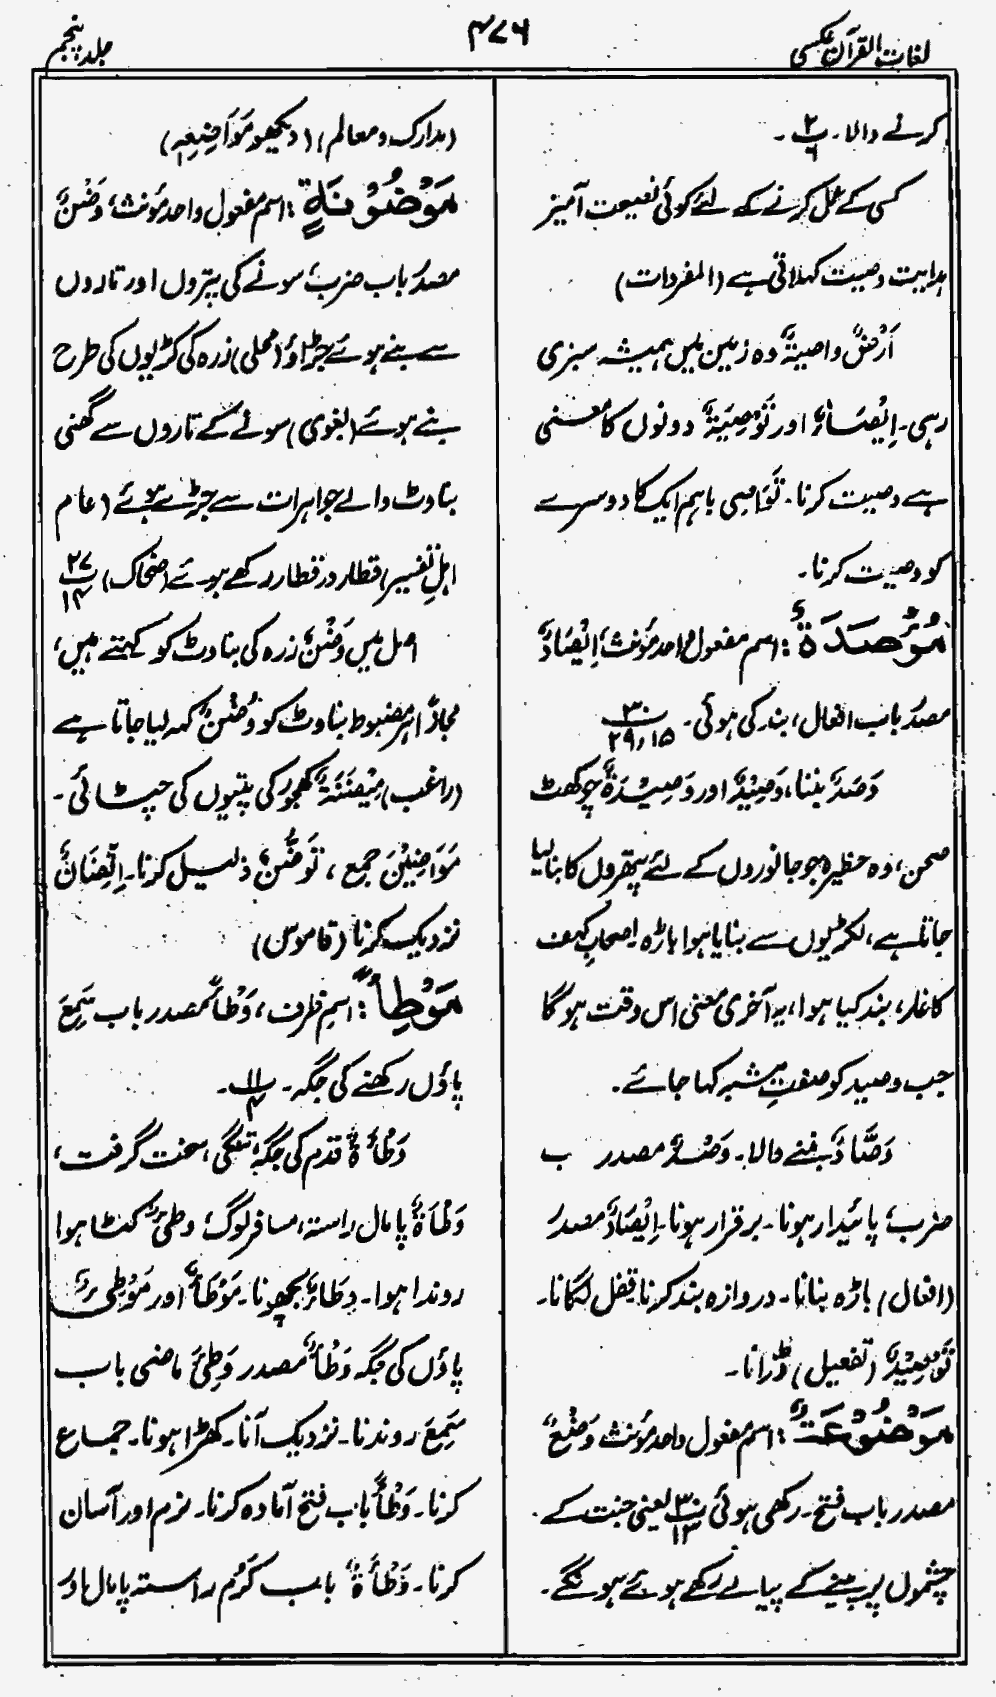 لغات القرآن عکسی
۴۷۶
جلد پنجم
کرنے والا۔ پ ۲ ۶۔
کسی کے عمل کرنے کے لئے کوئی نصیحت آمیز
ہدایت وصیت کہلاتی ہے (المفردات)
اَرْضٌ واصیۃٌ وہ زمین جس میں ہمیشہ سبزی
رہی۔ اِیْصَاءٌ اور تَوْصِیَۃٌ دونوں کا معنی
ہے وصیت کرنا۔ تَوَاصِی باہم ایک کا دوسرے
کو وصیت کرنا۔
مُؤْصَدَۃٌ: اسم مفعول واحد مؤنث، اِیْصَادٌ
مصدر باب افعال، بند کی ہوئی۔ پ ۳۰ ۱۵،۲۹
وَصْدٌ بننا، وَصِیْدٌ اور وَصِیْدَۃٌ چوکھٹ
صحن، وہ حظیرہ جو جانوروں کے لئے پتھروں کا بنا لیا
جاتا ہے، لکڑیوں سے بنایا ہوا باڑہ، اصحاب کہف
کا غار، بند کیا ہوا، یہ آخری معنی اس وقت ہوگا
جب وصید کو صفتِ مشبہ کہا جائے۔
وَصَّادٌ بننے والا۔ وَصْدٌ مصدر ب
ضرب، پائیدار ہونا۔ برقرار ہونا۔ اِیْصَادٌ مصدر
(افعال) باڑہ بنانا۔ دروازہ بند کرنا قفل لگانا۔
تَوْصِیْدٌ (تفعیل) ڈرانا۔
مَوْضُوْعَۃٌ: اسم مفعول واحد مؤنث وَضْعٌ
مصدر باب فتح۔ رکھی ہوئی پ ۳۰ ۱۳ یعنی جنت کے
چشموں پر پینے کے پیالے رکھے ہوئے ہونگے۔
(مدارک و معالم) (دیکھو مَوَاضِعِہٖ)
مَوْضُوْنَۃٍ: اسم مفعول واحد مؤنث، وَضْنٌ
مصدر باب ضرب، سونے کی پتروں اور تاروں
سے بنے ہوئے جڑاؤ (محلی) زرہ کی کڑیوں کی طرح
بنے ہوئے (بغوی) سونے کے تاروں سے گھنی
بناوٹ والے جواہرات سے جڑے ہوئے (عام
اہلِ تفسیر) قطار در قطار رکھے ہوئے (ضحاک) پ ۲۷ ۱۴
اصل میں وَضْنٌ زرہ کی بناوٹ کو کہتے ہیں،
مجازاً ہر مضبوط بناوٹ کو وَضْنٌ کہہ لیا جاتا ہے
(راغب) مِیْضَنَۃٌ کھجور کی پتیوں کی چٹائی۔
مَوَاضِیْن جمع، تَوَضُّنٌ ذلیل کرنا۔ اِتِّضَانٌ
نزدیک کرنا (قاموس)
مَوْطِأً: اسمِ ظرف، وَطْأٌ مصدر باب سَمِعَ
پاؤں رکھنے کی جگہ۔ پ ۱۱ ۴۔
وَطْأَۃٌ قدم کی جگہ، تنگی، سخت گرفت،
وَطْأَۃٌ پامال راستہ، مسافر لوگ، وطیءٌ کٹا ہوا
روندا ہوا۔ وِطَاءٌ بچھونا۔ مَوْطَأٌ اور مَوْطِیءٌ
پاؤں کی جگہ وَطْأٌ مصدر وَطِیَ ماضی باب
سَمِعَ روندنا۔ نزدیک آنا۔ کھڑا ہونا۔ جماع
کرنا۔ وَطْأٌ باب فتح آمادہ کرنا۔ نرم اور آسان
کرنا۔ وَطْأَۃٌ باب کَرُم راستہ پامال اور